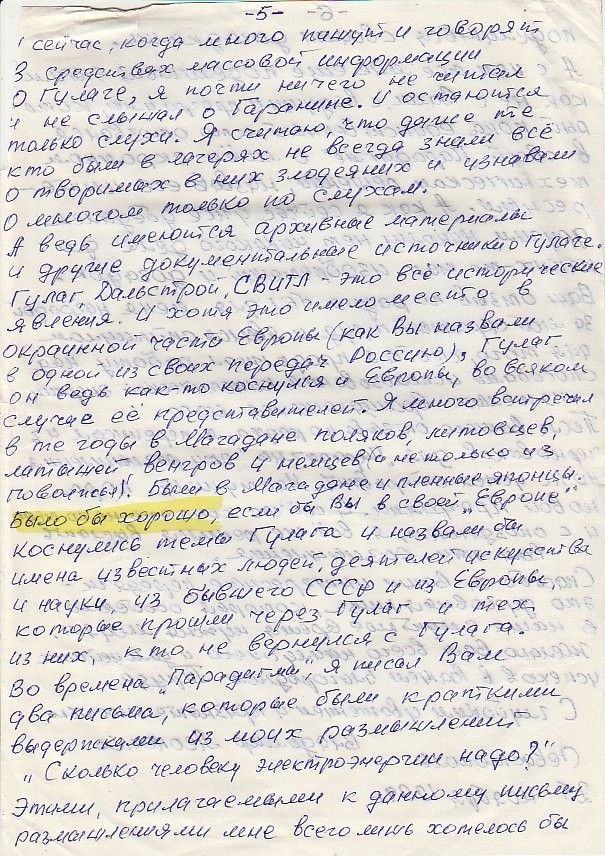 -5-
и сейчас, когда много пишут и говорят
в средствах массовой информации
о Гулаге, я почти ничего не читал
и не слышал о Гаранине. И остаются
только слухи. Я считаю, что даже те
кто были в лагерях не всегда знали всё
о творимых в них злодеяниях и узнавали
о многом только по слухам.
А ведь имеются архивные материалы
и другие документальные источники о Гулаге.
Гулаг, Дальстрой, СВИТЛ - это всё исторические
явления. И хотя это имело место в
окраинной части Европы (как Вы назвали
в одной из своих передач Россию), Гулаг
он ведь как-то коснулся и Европы, во всяком
случае её представителей. Я много встречал
в те годы в Магадане поляков, литовцев,
латышей венгров и немцев (и не только из
поволжья). Были в Магадане и пленные японцы.
Было бы хорошо, если бы Вы в своей „Европе"
коснулись темы Гулага и назвали бы
имена известных людей, деятелей искусства
и науки, из бывшего СССР и из Европы,
которые прошли через Гулаг и тех
из них, кто не вернулся с Гулага.
Во времена „Парадигмы", я писал Вам
два письма, которые были краткими
выдержками из моих размышлений
„Сколько человеку электроэнергии надо?"
Этими, прилагаемыми к данному письму
размышлениями мне всего лишь хотелось бы